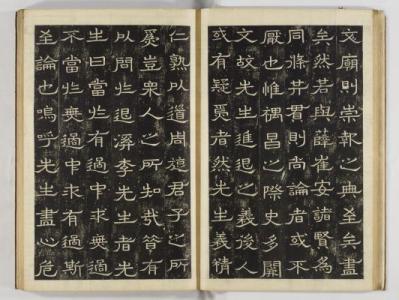 文廟則崇報之典至矣盡
矣然若與薛崔安諸賢為
同條共貫則尚論者或不
厭也惟禑昌之際史多闕
文故先生進退之義後人
或有疑焉者然先生義精
仁熟以道周還君子之所
爲豈衆人之所知哉嘗有
以問退溪李先生者先
生曰當於有過中求無過
不當於無過中求有過斯
至論也嗚呼先生盡心危